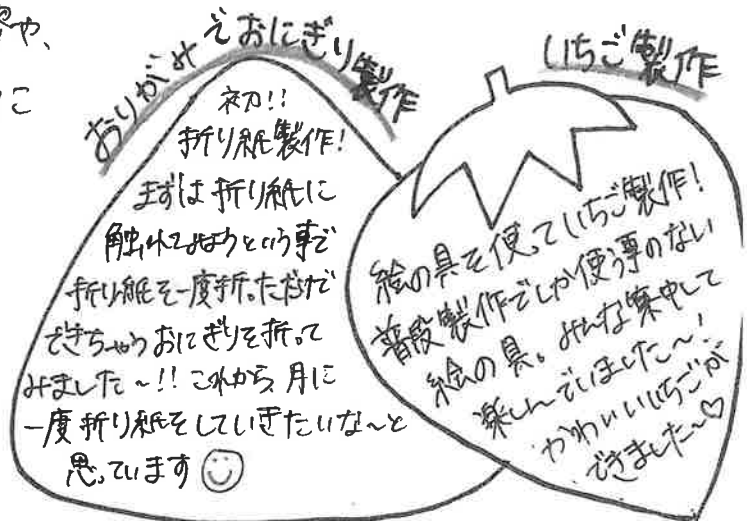 や、
こ
おりがみ えおにぎり製作
初!!
折り紙製作!
まずは折り紙に
触れてみようという事で
折り紙を一度折っただけで
できちゃうおにぎりを折って
みました~!! これから月に
一度折り紙をしていきたいな~と
思っています
いちご製作
絵の具を使っていちご製作!
普段製作でしか使う事のない
絵の具。みんな集中して
楽しんでいました~!
かわいいいちごが
できました~♡